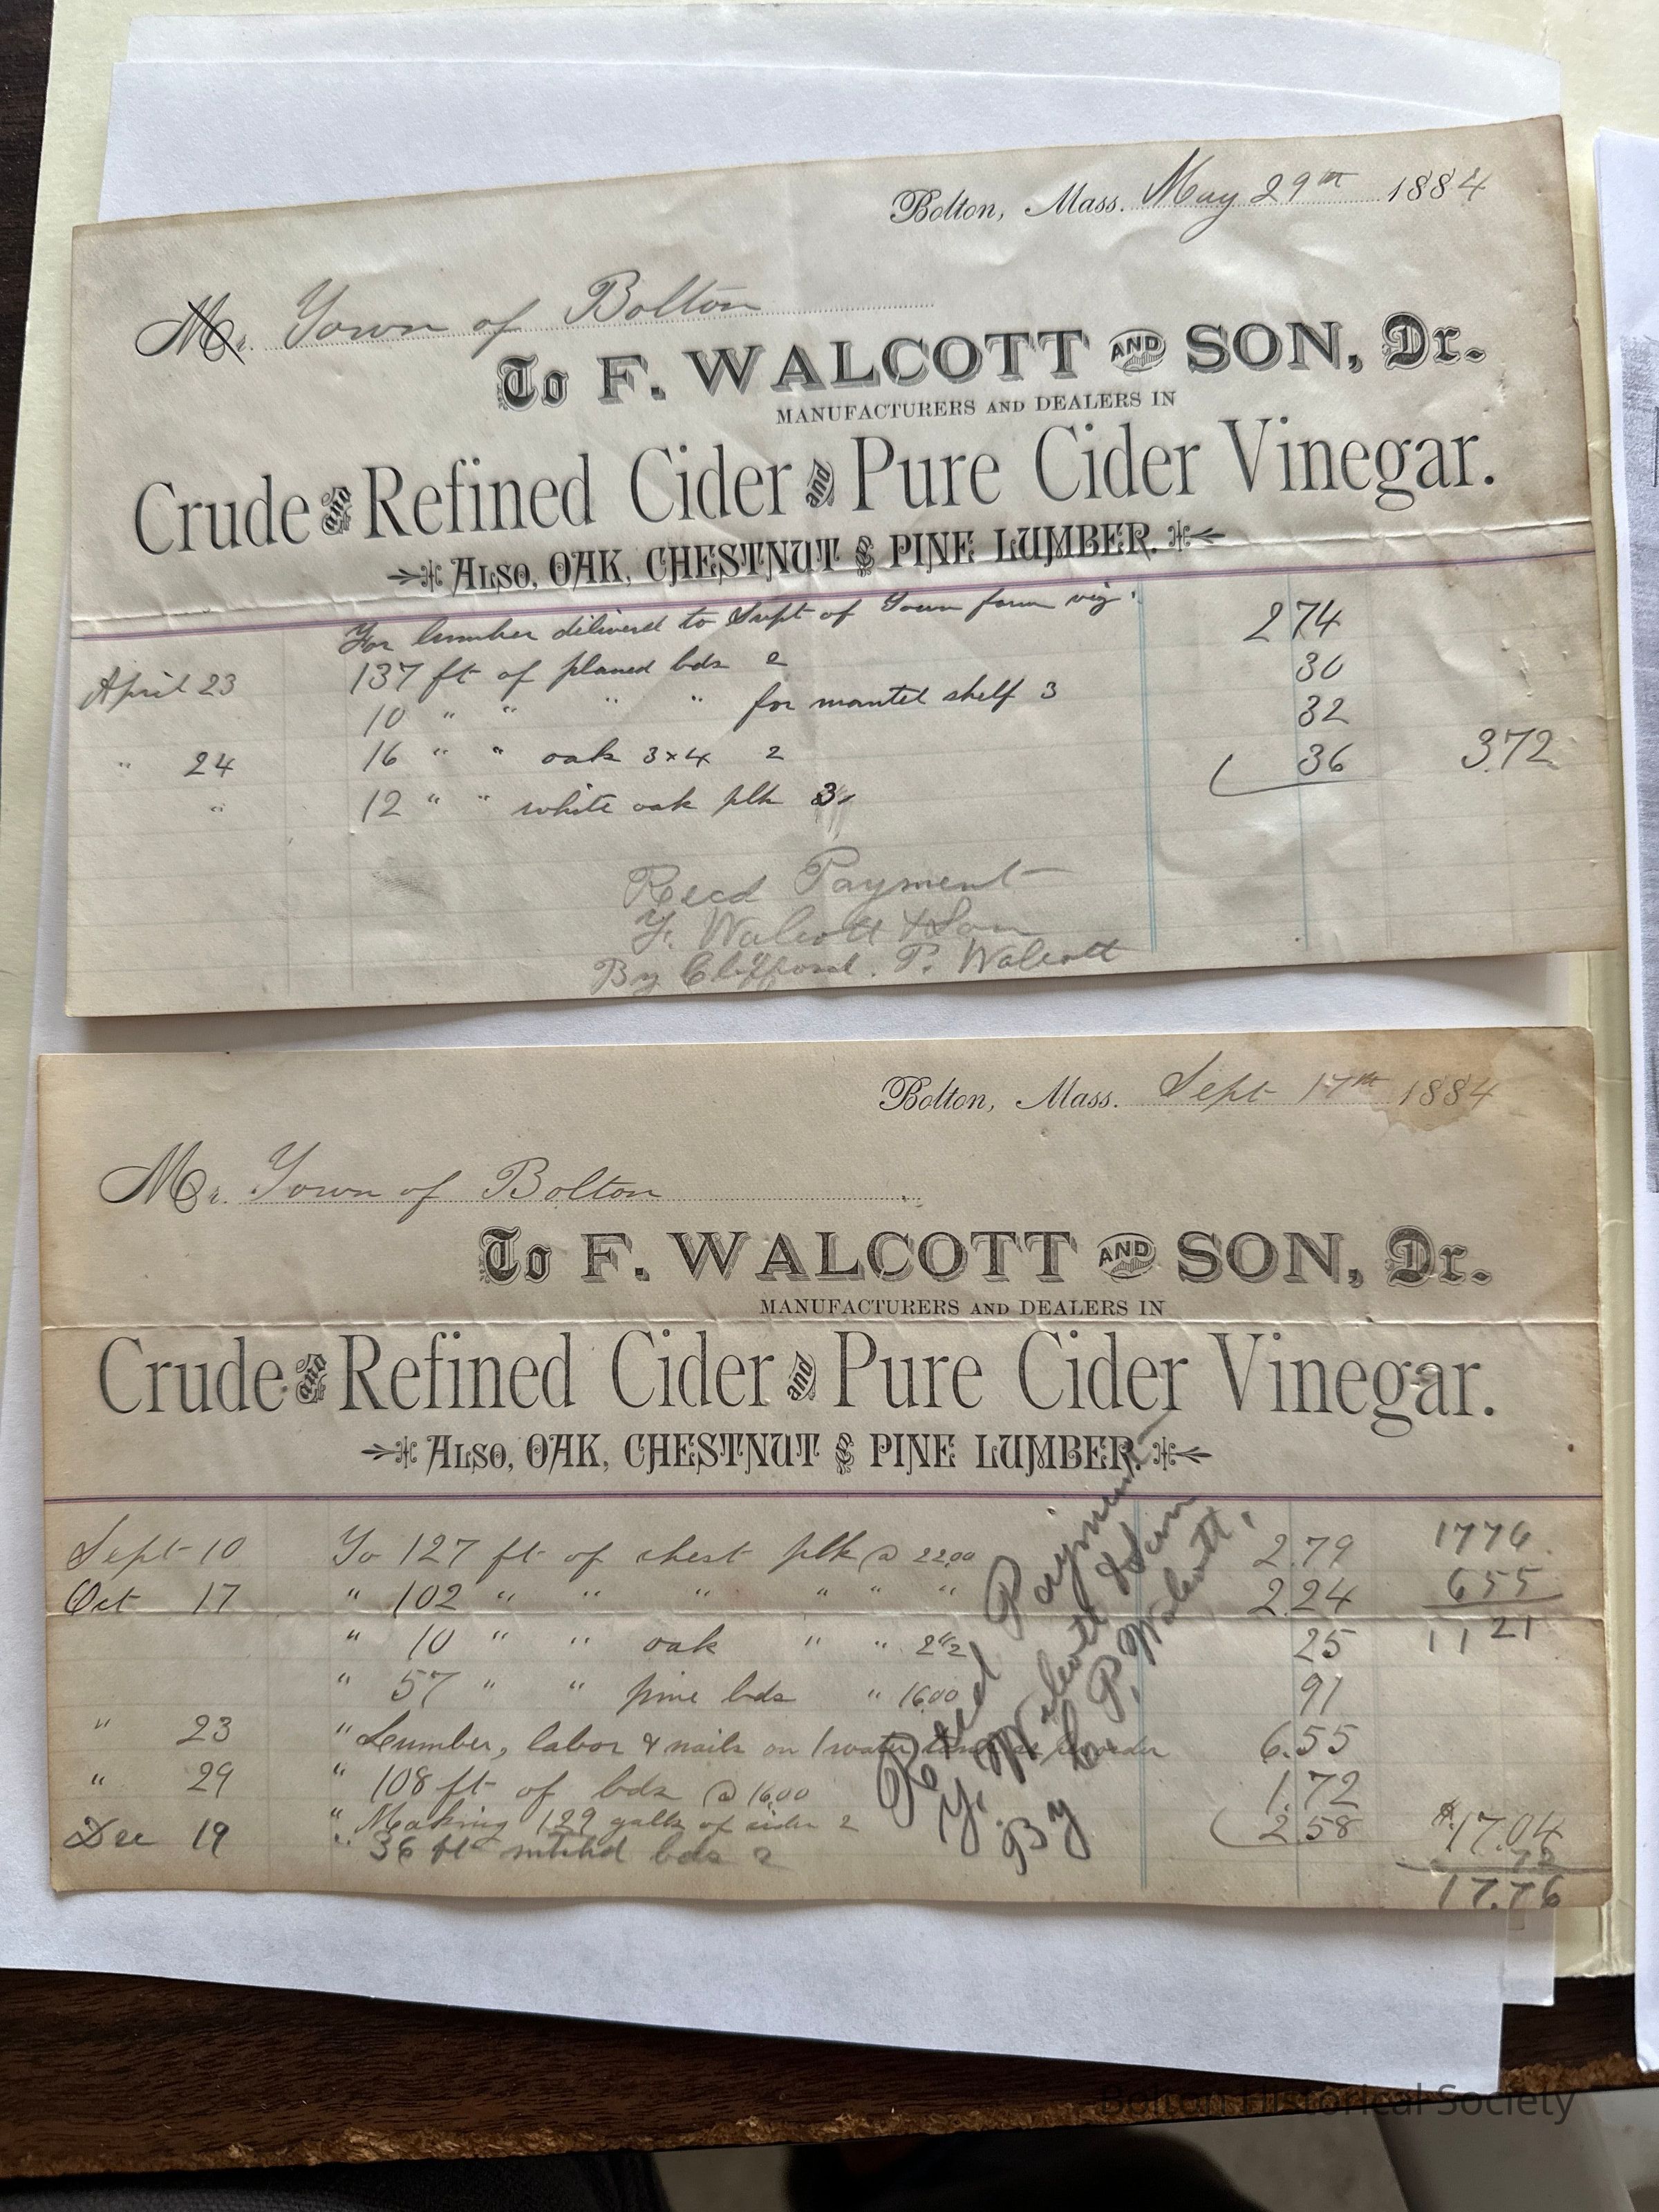 Bolton, Mass. May 29th 1884
Mr. Town of Bolton
To F. WALCOTT AND SON, Dr.
MANUFACTURERS AND DEALERS IN
Crude and Refined Cider and Pure Cider Vinegar.
ALSO, OAK, CHESTNUT & PINE LUMBER.
For lumber delivered to Supt of Town farm viz.
April 23 137 ft of planed bds 2 2 74
10 " " " " for mantel shelf 3 30
" 24 16 " " oak 3x4 2 32
" 12 " " white oak plk 3 36 3.72
Recd Payment
F. Walcott & Son
By Clifford. P. Walcott
Bolton, Mass. Sept 17th 1884
Mr. Town of Bolton
To F. WALCOTT AND SON, Dr.
MANUFACTURERS AND DEALERS IN
Crude and Refined Cider and Pure Cider Vinegar.
ALSO, OAK, CHESTNUT & PINE LUMBER.
Sept 10 To 127 ft of chest plk @ 22.00 2.79 1776
Oct 17 " 102 " " " " " " 2.24 655
" 10 " " oak " " 2 1/2 25 11 21
" 57 " " pine bds " 16.00 91
" 23 " Lumber, labor & nails on 1 water 6.55
" 29 " 108 ft of bds @ 16.00 1.72
Dec 19 " Making 129 galls of cider 2 2.58 $17.04
" 36 ft mtchd bds 2 72
17.76
Recd Payment
F. Walcott & Son
By C. P. Walcott.
Bolton Historical Society